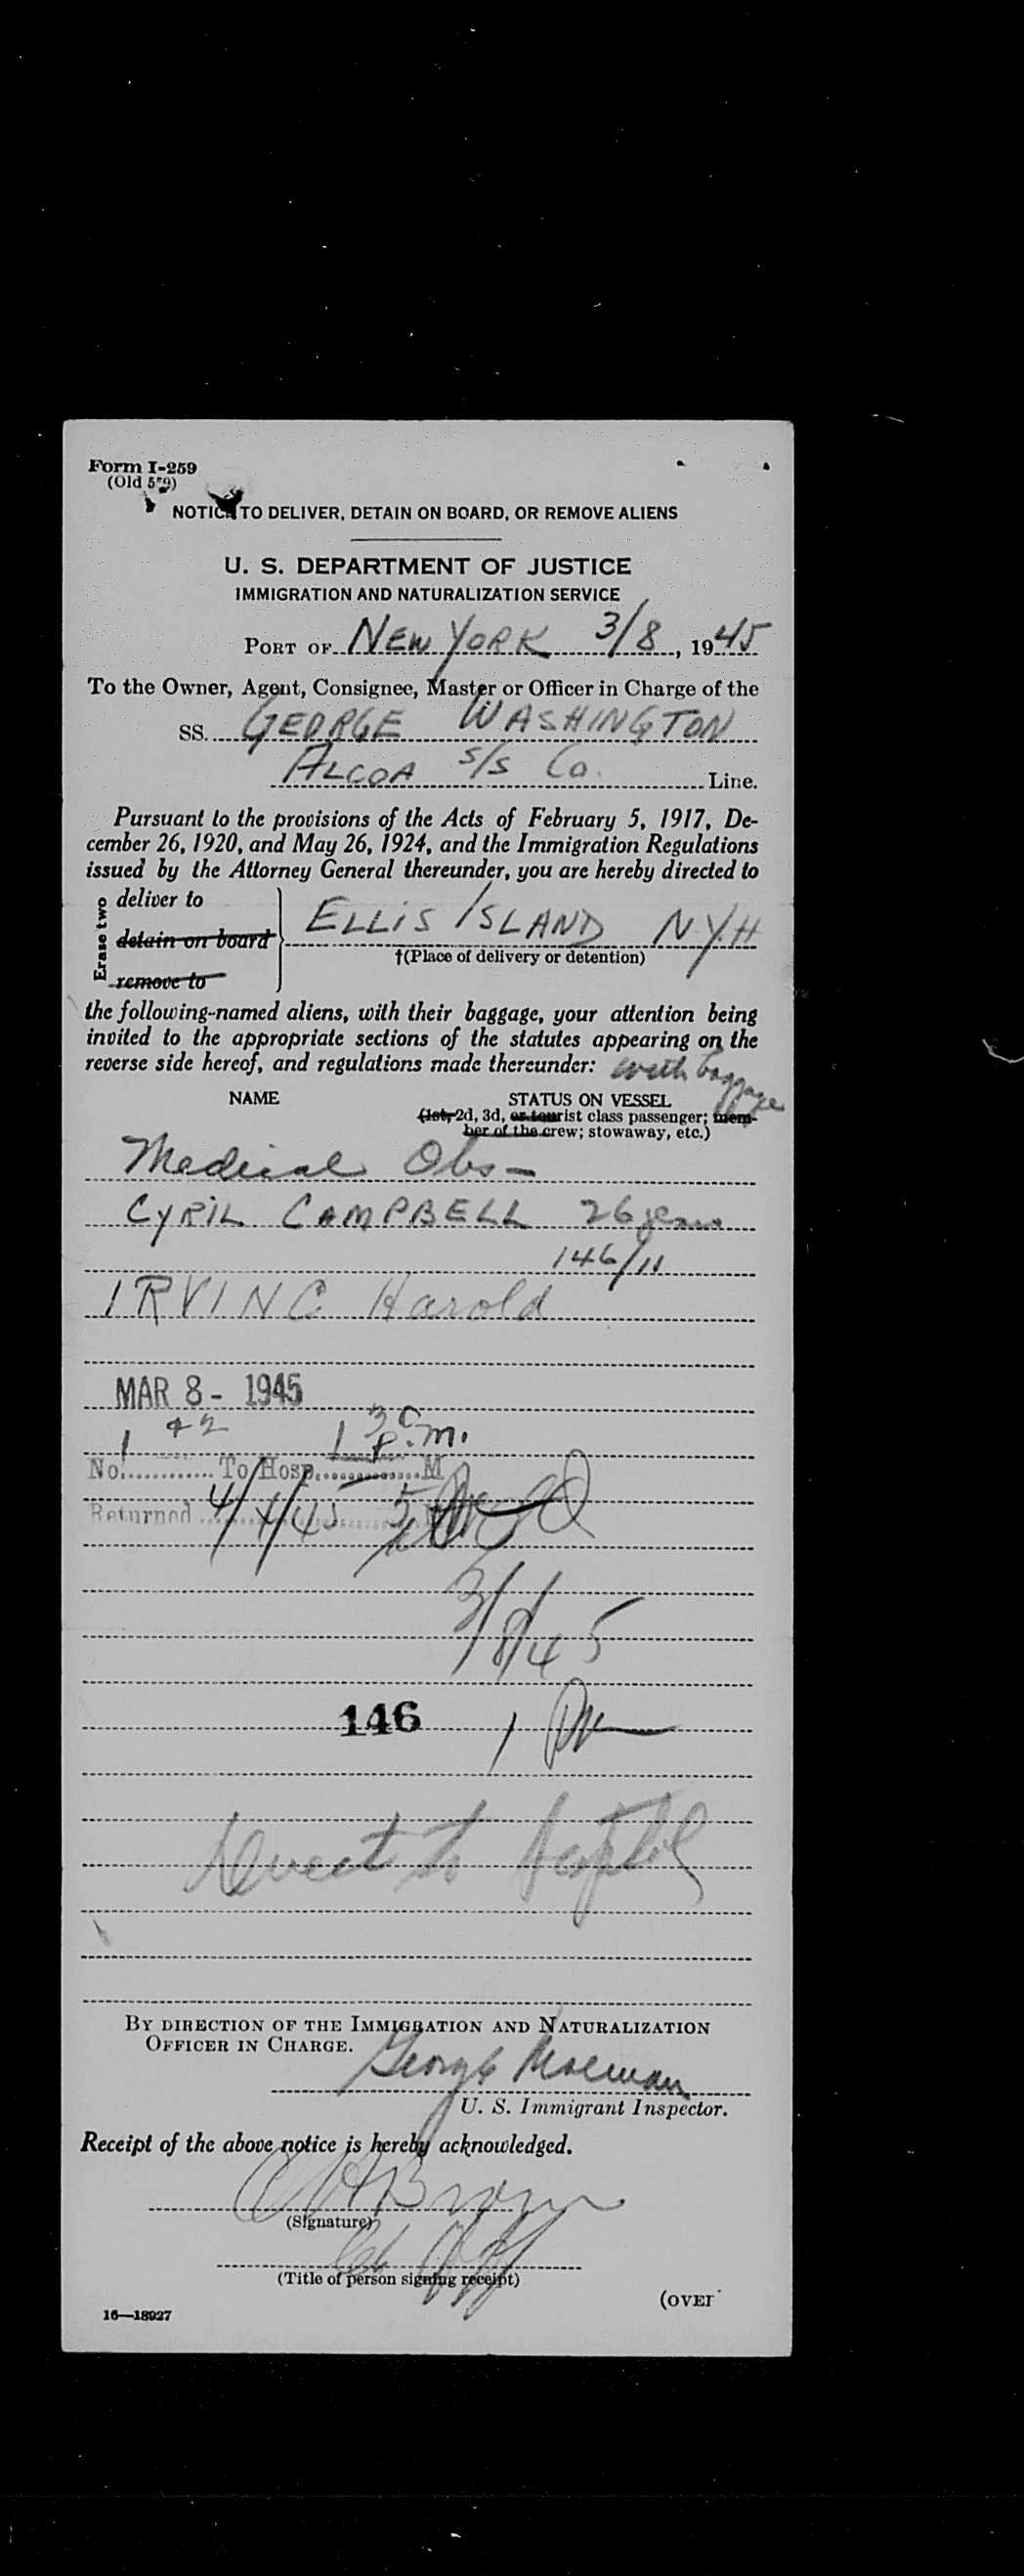 Form I-259
(Old 579)
NOTICE TO DELIVER, DETAIN ON BOARD, OR REMOVE ALIENS
U. S. DEPARTMENT OF JUSTICE
IMMIGRATION AND NATURALIZATION SERVICE
PORT OF NEW YORK 3/8, 1945
To the Owner, Agent, Consignee, Master or Officer in Charge of the
SS. GEORGE WASHINGTON
ALCOA S/S Co. Line.
Pursuant to the provisions of the Acts of February 5, 1917, De-
cember 26, 1920, and May 26, 1924, and the Immigration Regulations
issued by the Attorney General thereunder, you are hereby directed to
Erase two
deliver to
detain on board
remove to
ELLIS ISLAND N.Y.H
†(Place of delivery or detention)
the following-named aliens, with their baggage, your attention being
invited to the appropriate sections of the statutes appearing on the
reverse side hereof, and regulations made thereunder: with baggage
NAME STATUS ON VESSEL
(1st, 2d, 3d, or tourist class passenger; mem-
ber of the crew; stowaway, etc.)
Medical Obs -
CYRIL CAMPBELL 26 years
146/11
IRVING Harold
MAR 8 - 1945
No. 1 To Hosp. 1 M
Returned 4/4/45
3/8/45
146 1
Direct to Hospital
BY DIRECTION OF THE IMMIGRATION AND NATURALIZATION
OFFICER IN CHARGE.
George
U. S. Immigrant Inspector.
Receipt of the above notice is hereby acknowledged.
Brown
(Signature)
(Title of person signing receipt)
(OVER
16—18927